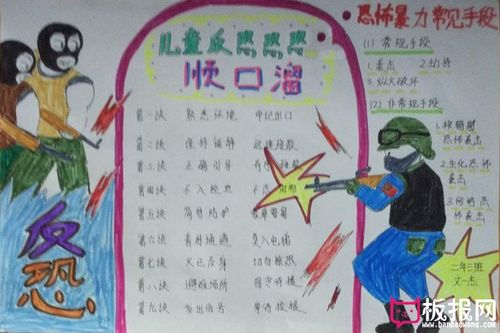 儿童反恐恐恐
顺口溜
第一块 熟悉环境 牢记出口
第二块 保持镇静 迅速疏散
第三块 正确引导
第四块 不入险地
第五块 简易防护
第六块 善用通道 莫入电梯
第七块 火已及身 切勿惊恐
第八块 避难场所 固守待援
第九块 发出信号 等待救援
反恐
恐怖暴力常见手段
(1) 常规手段
1.袭击 2.劫持
3.纵火破坏
(2) 非常规手段
1.核辐射
恐怖袭击
2.生化恐怖
袭击
3.网络恐
怖袭击
二年三班
文一杰
板报网
www.banbaowang.com